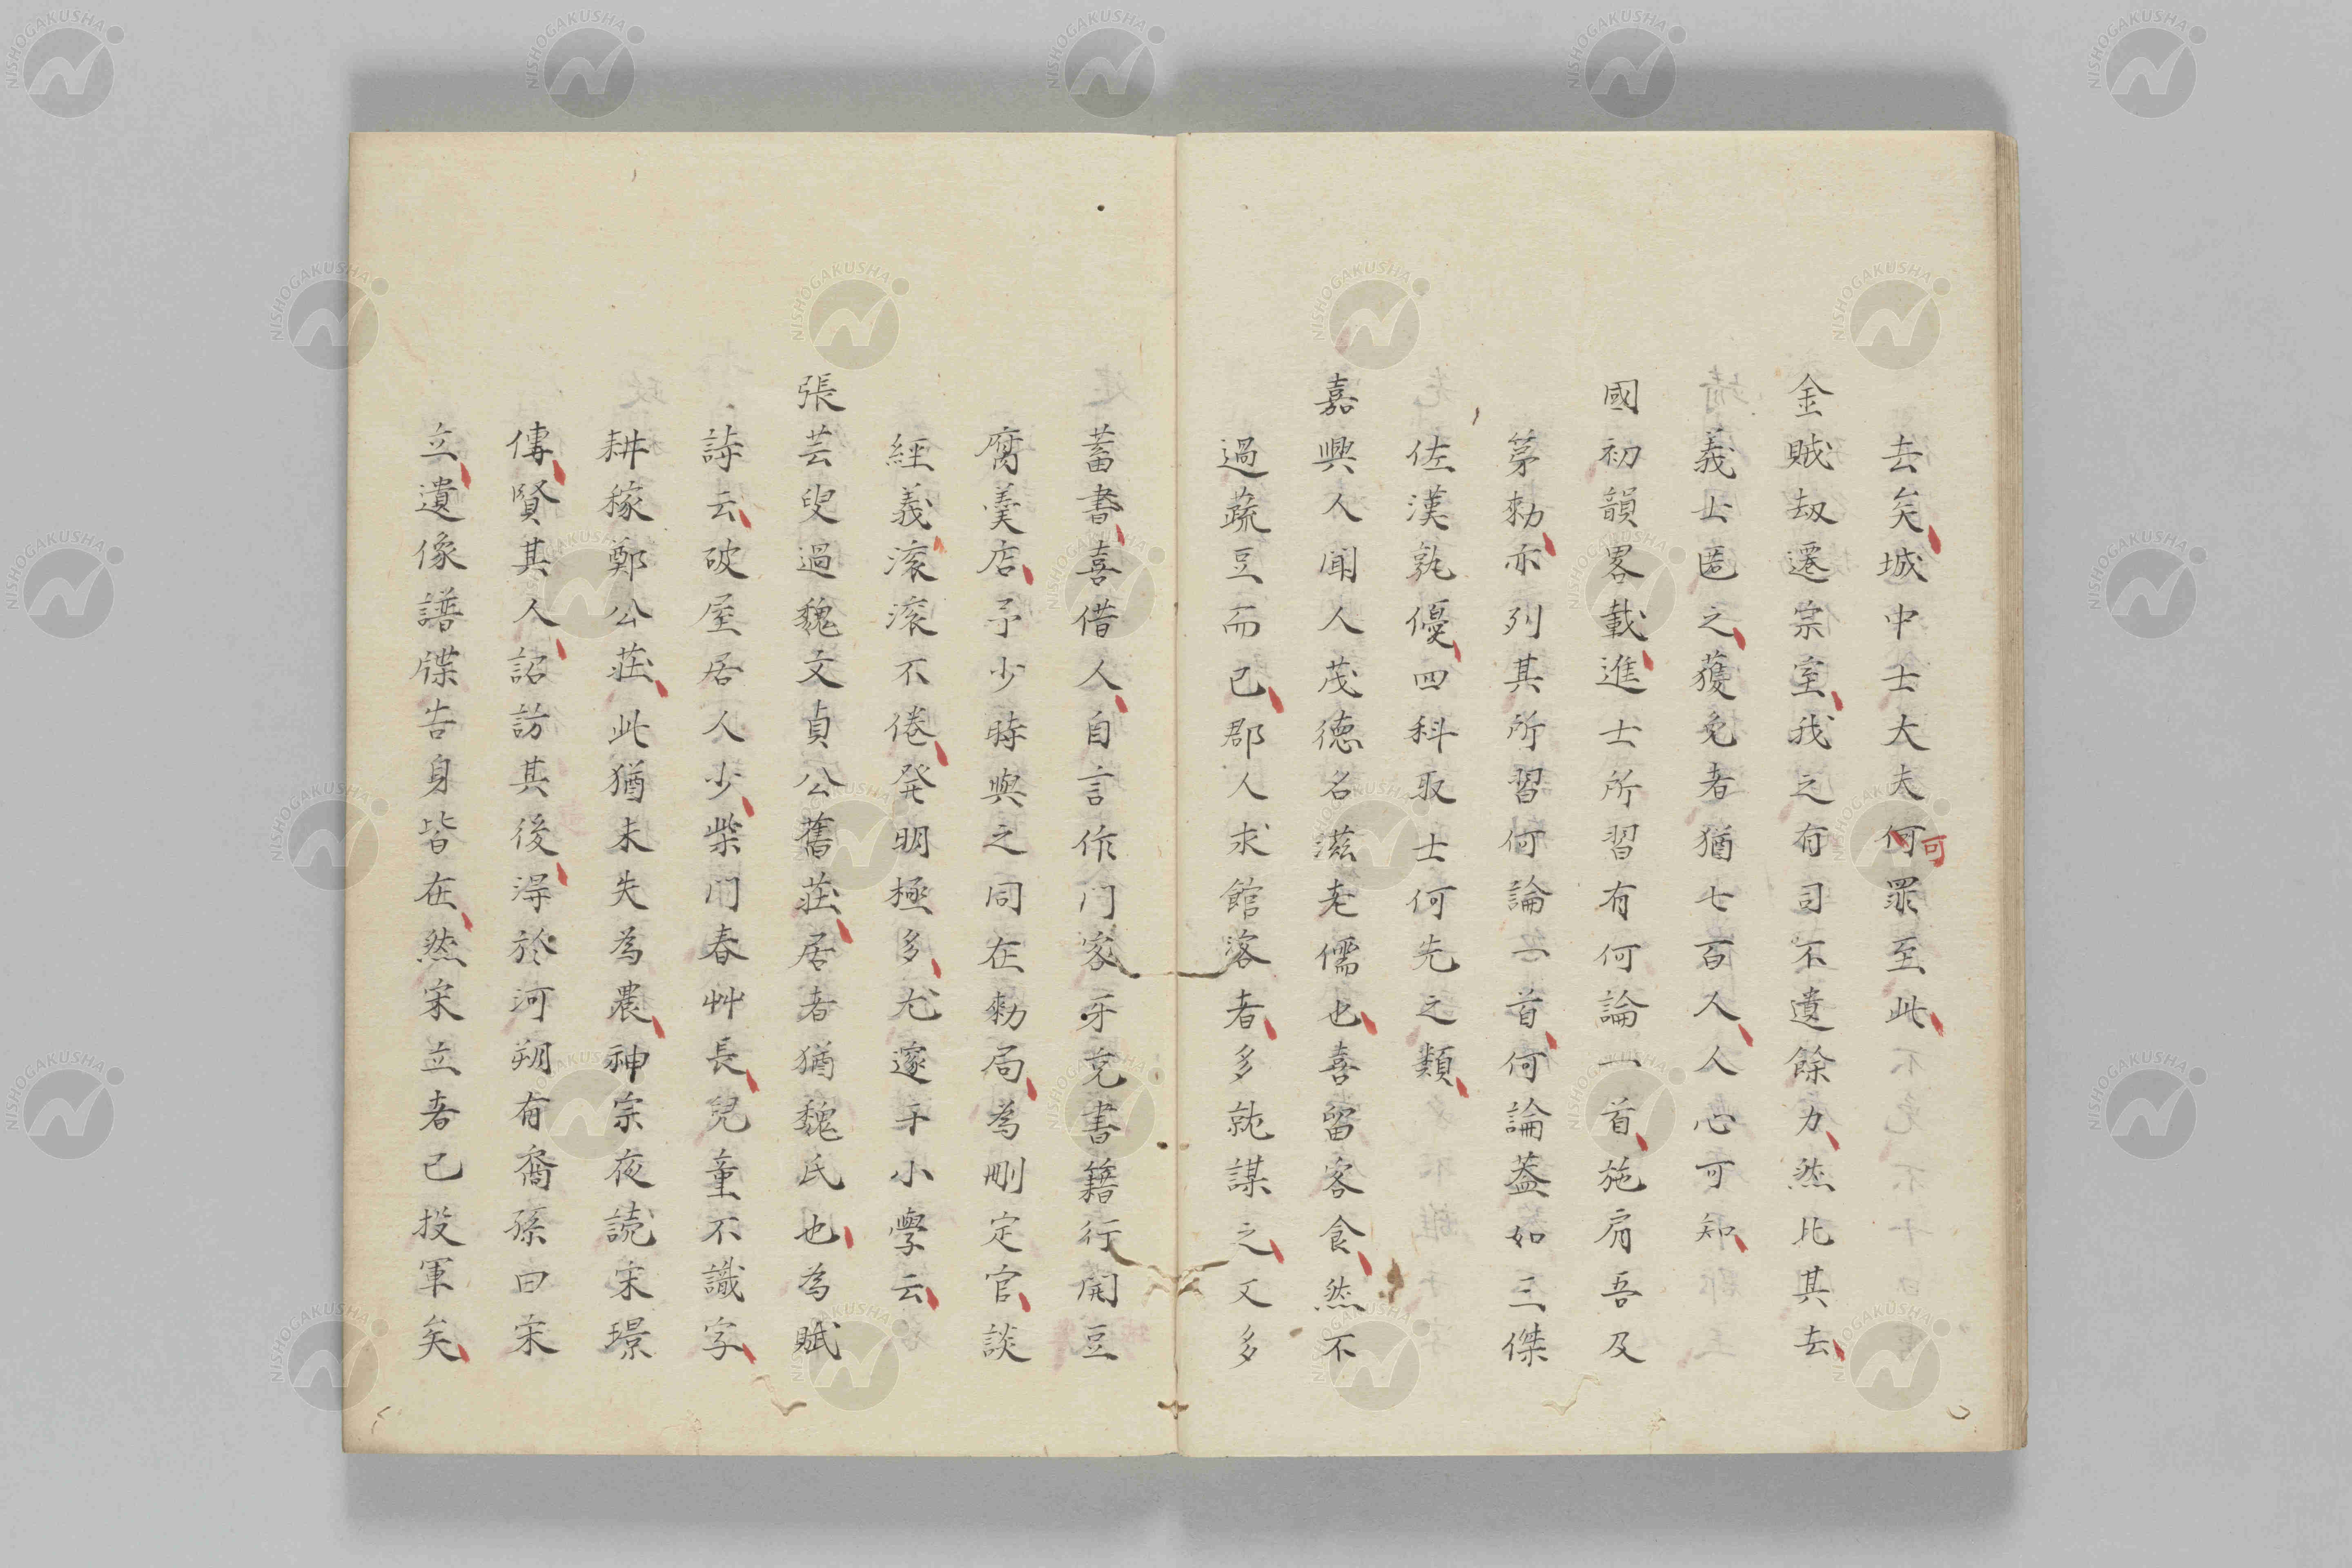 去矣城中士大夫何罪至此
可
金賊刼遷宗室我之有司不遺餘力然比其去
義士匿之獲免者猶七百人人心可知
國初韻畧載進士所習有何論一首施肩吾及
第勑亦列其所習何論一首何論蓋如三傑
佐漢孰優四科取士何先之類
嘉興人聞人茂徳名滋老儒也喜留客食然不
過蔬豆而已郡人求館落者多就謀之又多
蓄書喜借人自言作門客牙充書籍行開豆
腐羹店予少時與之同在勑局為刪定官談
經義滾滾不倦発明極多尤邃于小學云
張芸叟過魏文貞公舊莊居者猶魏氏也為賦
詩云破屋居人少柴門春艸長兒童不識字
耕稼鄭公莊此猶未失為農神宗夜読宋璟
傳賢其人詔訪其後淂於河朔有裔孫曰宋
立遺像譜牒告身皆在然宋立者已投軍矣
NISHOGAKUSHA